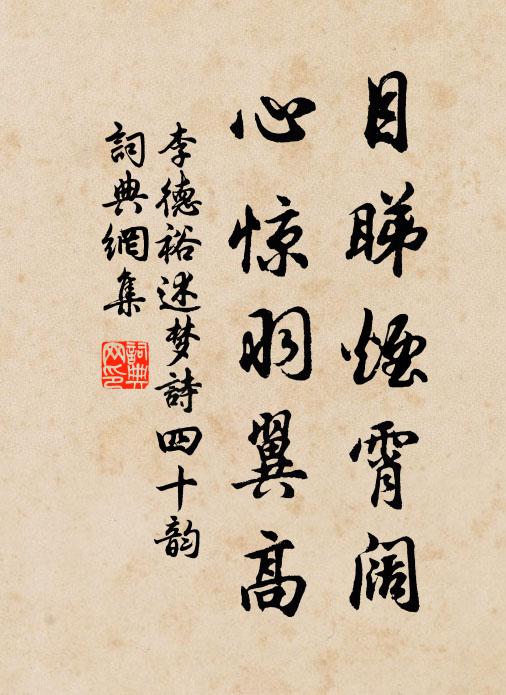 目睇煙霄阔
心惊羽翼高
李德裕述梦詩四十韵
詞典網集
詞典
网印